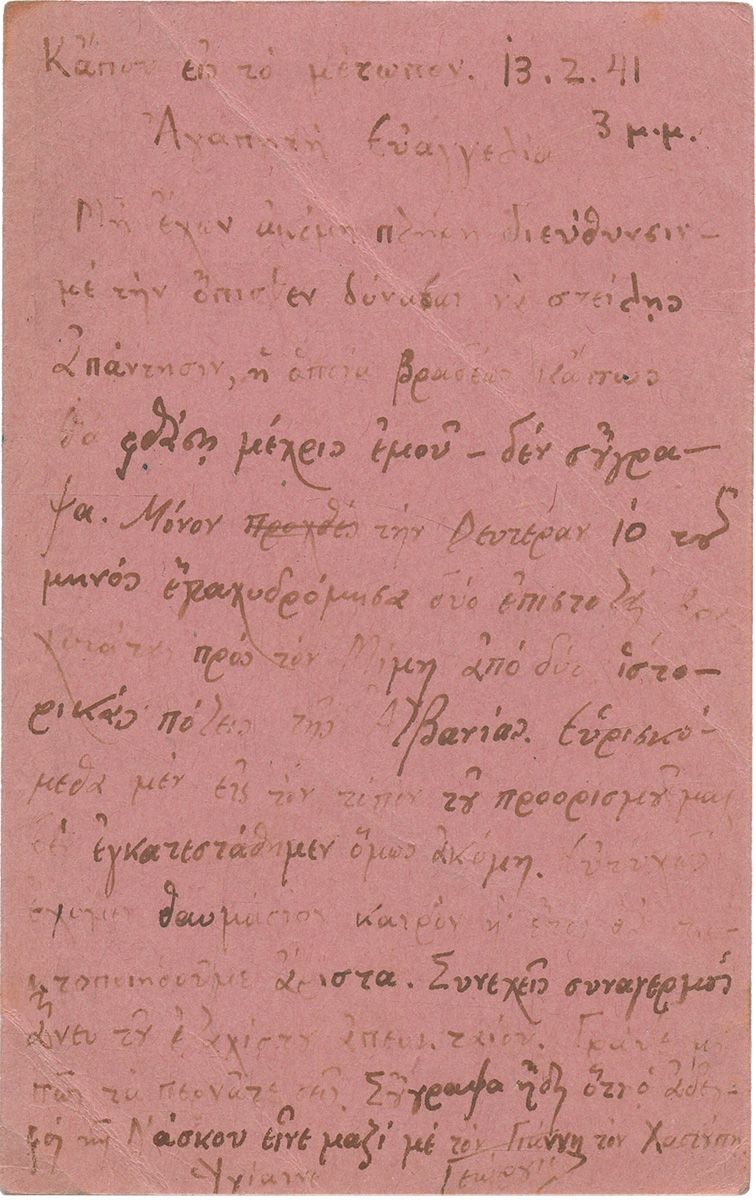 Κἄπου εἰς τὸ μέτωπον. 13.2.41
3 μ.μ.
Ἀγαπητὴ Εὐαγγελία
Μὴ ἔχων ἀκόμη πλήρη διεύθυνσιν –
μὲ τὴν ὄπισθεν δύναμαι νὰ στείλῃς
ἀπάντησιν, ἡ ὁποία βραδέως κἄπως
θὰ φθάσῃ μέχρις ἐμοῦ – δὲν σοῦ ἔγρα–
ψα. Μόνον προχθὲς τὴν Δευτέραν 10 τοῦ
μηνὸς ἐταχυδρόμησα δύο ἐπιστολὰς
πρὸς τὸν Μίμη ἀπὸ δύο ἱστο–
ρικὰς πόλεις τῆς Ἀλβανίας. Εὑρισκό–
μεθα μὲν εἰς τὸν τόπον τοῦ προορισμοῦ μας
δὲν ἐγκατεστάθημεν ὅμως ἀκόμη. Εὐτυχῶς
ἔχομεν θαυμάσιον καιρὸν
τοποιηθοῦμε ἄριστα. Συνεχεῖς συναγερμοὶ
ἄνευ τοῦ ἐλαχίστου ἀπευκταίου. Γράψε μου
πῶς τὰ περνᾶτε σεῖς. Σοῦ ἔγραψα ἤδη ὅτι ὁ ἀδελ–
φὸς τῆς Νάσκου εἶνε μαζὶ μὲ τὸν Γιάννη τὸν
Ὑγίαινε Γεώργιος